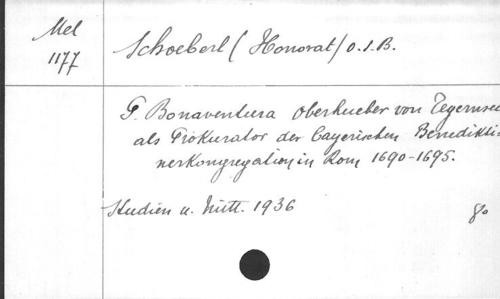 Mel
1177
Schoeberl (Honorat) O.S.B.
P. Bonaventura Oberhueber von Tegernsee
als Prokurator der bayerischen Benedikti-
nerkongregation in Rom 1690-1695.
Studien u. Mitt. 1936
80